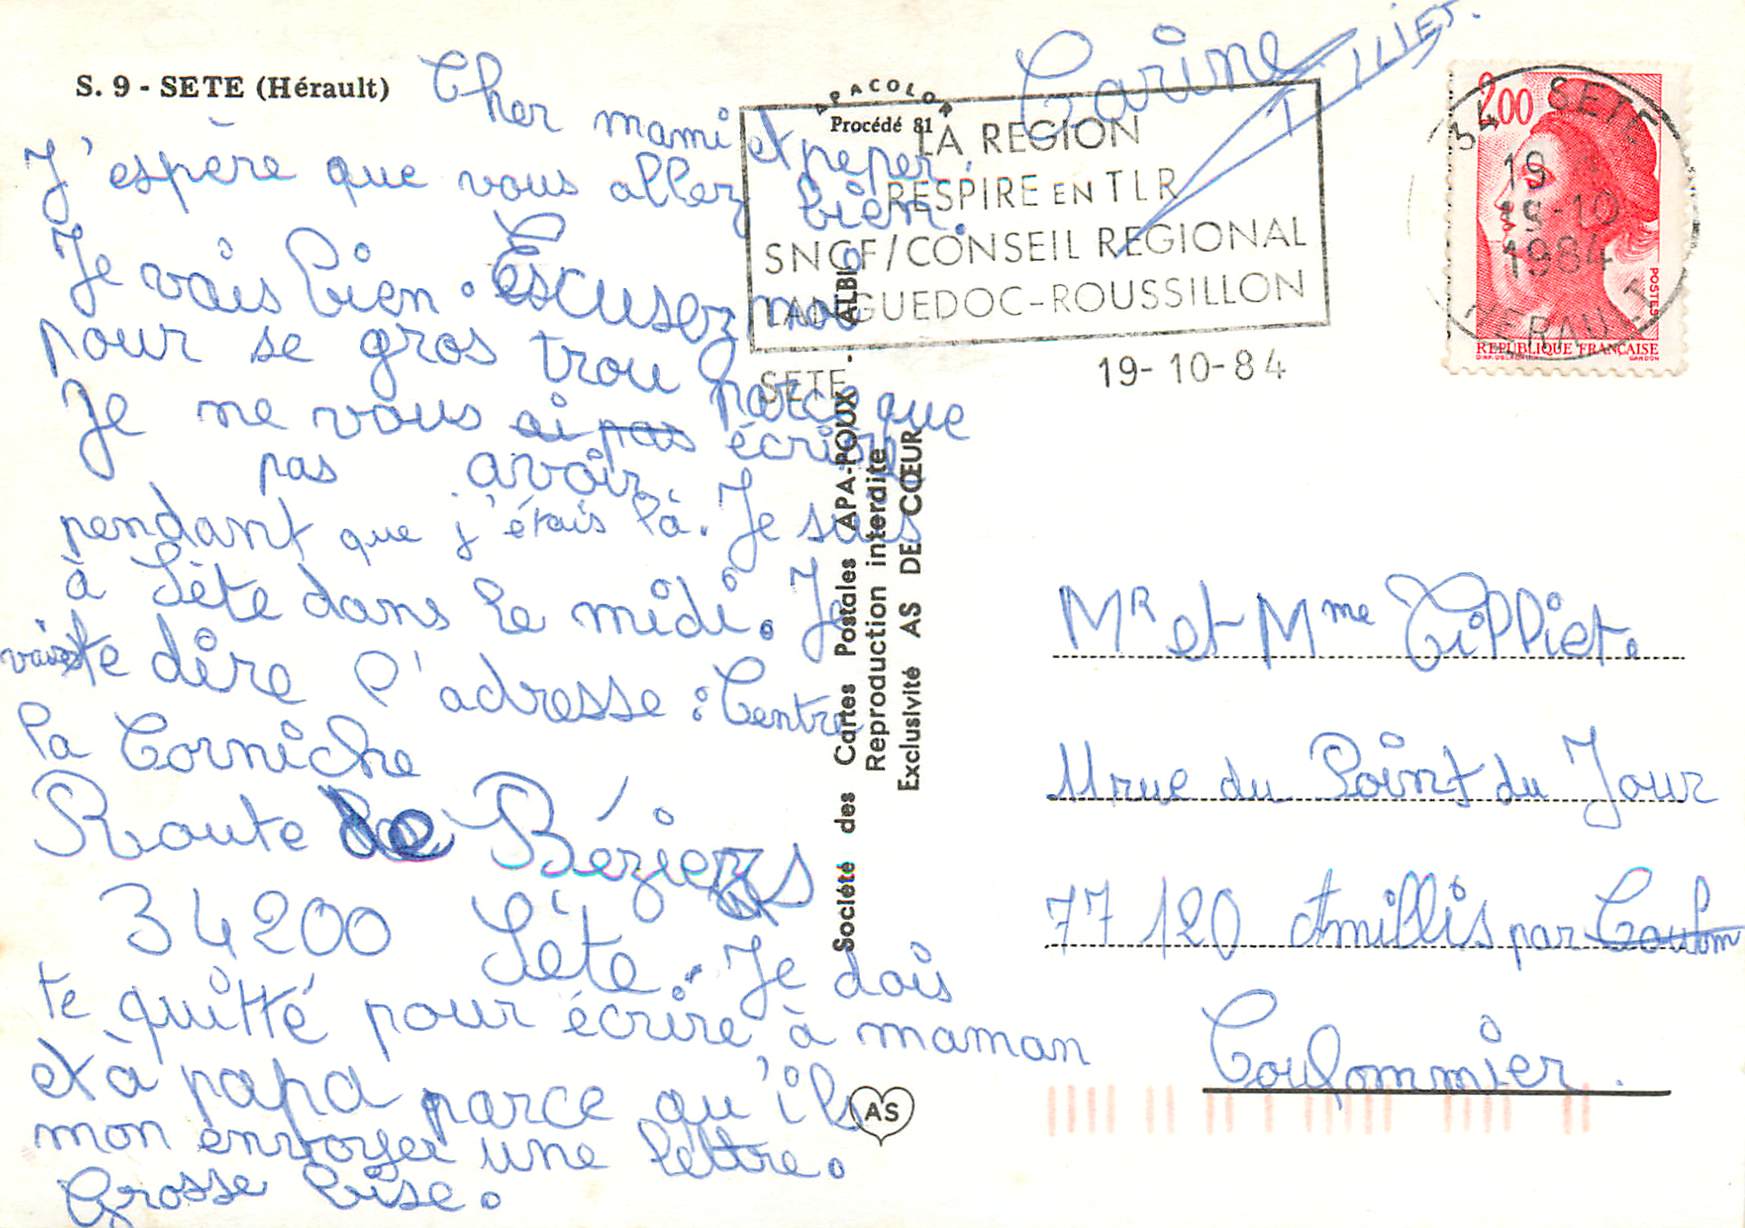 S. 9 - SETE (Hérault)
Cher mami et peper.
J'espère que vous allez bien.
Je vais bien. Escusez moi
pour se gros trou parce que
Je ne vous ai pas écrir
pas avoir
pendant que j'étais là. Je suis
à Sète dans le midi. Je
vais te dire l'adresse : Centre
la Corniche
Route de Béziers
34200 Sète. Je dois
te quitté pour écrire à maman
et à papa parce qu'ils
mon envoyer une lettre.
Grosse bise.
Carine
TILLIET.
APACOLOR
Procédé 81
LA REGION
RESPIRE EN TLR
SNCF/CONSEIL REGIONAL
LANGUEDOC-ROUSSILLON
SETE
19-10-84
Société des Cartes Postales APA-POUX - ALBI
Reproduction interdite
Exclusivité AS DE CŒUR
AS
2,00
POSTES
REPUBLIQUE FRANÇAISE
34 SETE
19
19-10
1984
HERAULT
MR et Mme Tilliet.
11 rue du Point du Jour
77 120 Amillis par Coulom
Coulommier.